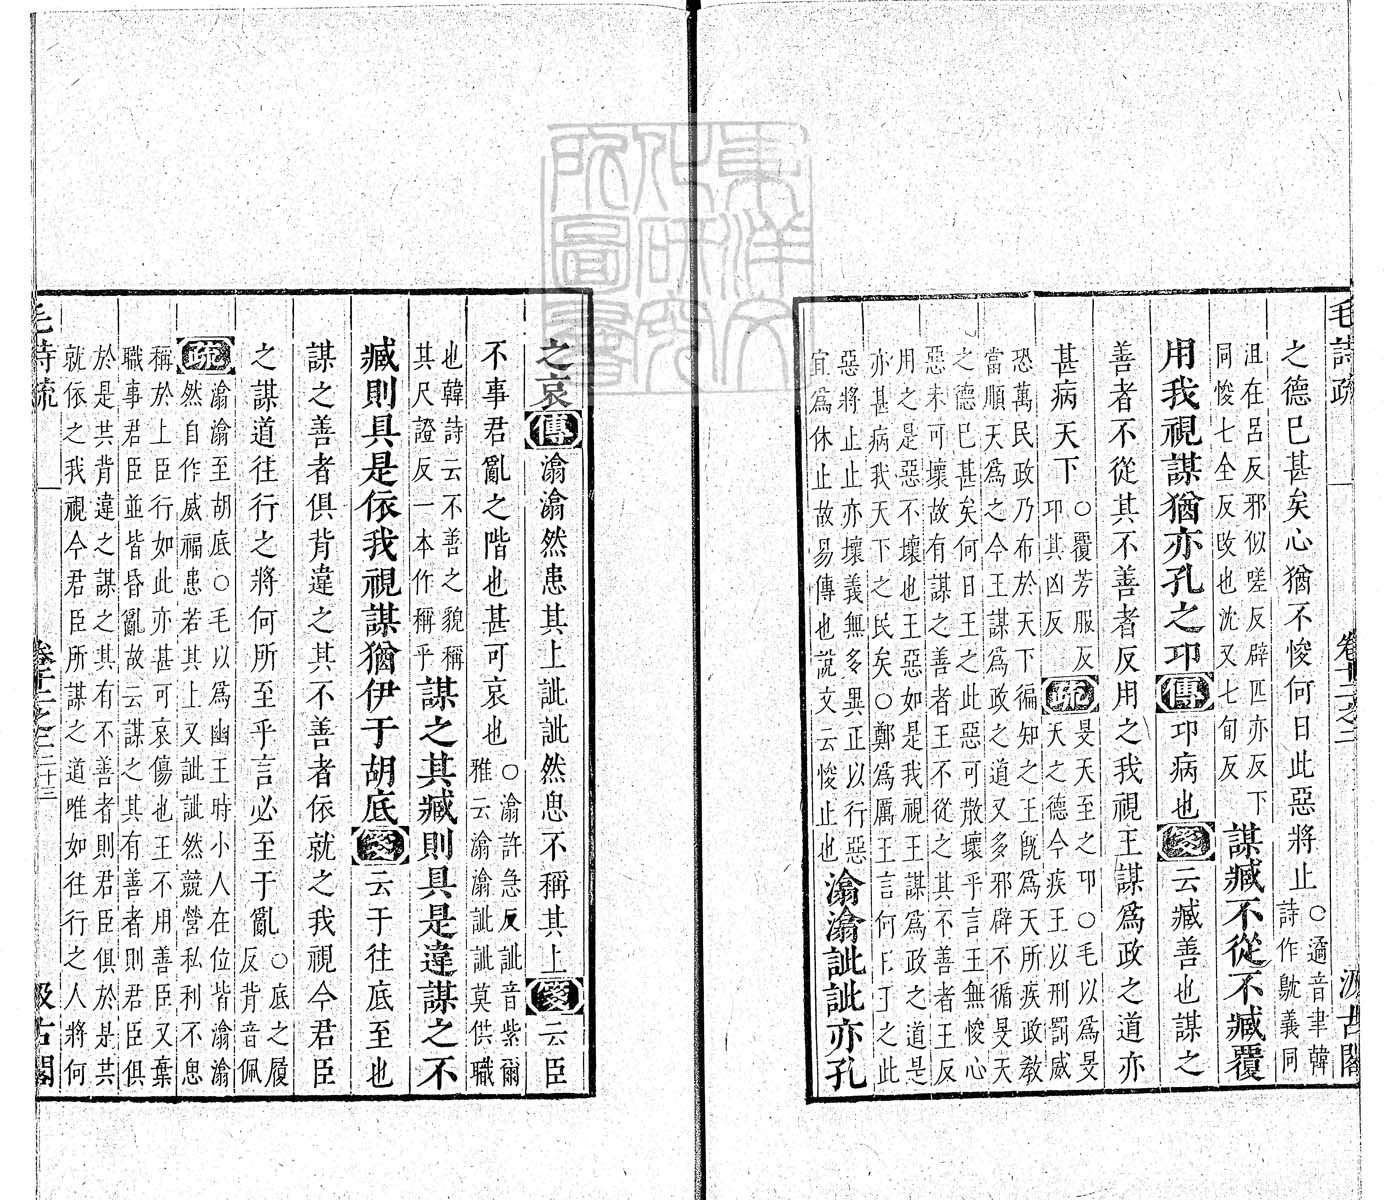 毛詩疏
卷十二之二
汲古閣
之德巳甚矣心猶不悛何日此惡將止
○遹音聿韓
詩作䬆義同
沮在呂反邪似嗟反辟匹亦反下
同悛七全反改也沈又七旬反
謀臧不從不臧覆
用我視謀猶亦孔之邛傳邛病也箋云臧善也謀之
善者不從其不善者反用之我視王謀爲政之道亦
甚病天下
○覆芳服反
邛其凶反
疏
旻天至之邛○毛以爲旻
天之德今疾王以刑罰威
恐萬民政乃布於天下徧知之王旣爲天所疾政敎
當順天爲之今王謀爲政之道又多邪辟不循旻天
之德巳甚矣何日王之此惡可散壞乎言王無悛心
惡未可壞故有謀之善者王不從之其不善者王反
用之是惡不壞也王惡如是我視王謀爲政之道是
亦甚病我天下之民矣○鄭爲厲王言何日王之此
惡將止止亦壞義無多異正以行惡
宜爲休止故易傳也說文云悛止也
潝潝訿訿亦孔
之哀傳潝潝然患其上訿訿然思不稱其上箋云臣
不事君亂之階也甚可哀也
○潝許急反訿音紫爾
雅云潝潝訿訿莫供職
也韓詩云不善之貌稱
其尺證反一本作稱乎
謀之其臧則具是違謀之不
臧則具是依我視謀猶伊于胡底箋云于往底至也
謀之善者俱背違之其不善者依就之我視今君臣
之謀道往行之將何所至乎言必至于亂
○底之履
反背音佩
疏
潝潝至胡底○毛以爲幽王時小人在位皆潝潝
然自作威福患苦其上又訿訿然競營私利不思
稱於上臣行如此亦甚可哀傷也王不用善臣又棄
職事君臣並皆昏亂故云謀之其有善者則君臣俱
於是共背違之謀之其有不善者則君臣俱於是共
就依之我視今君臣所謀之道唯如往行之人將何
毛詩疏
卷十二之二
二十三
汲古閣
東洋文
化研究
所圖書